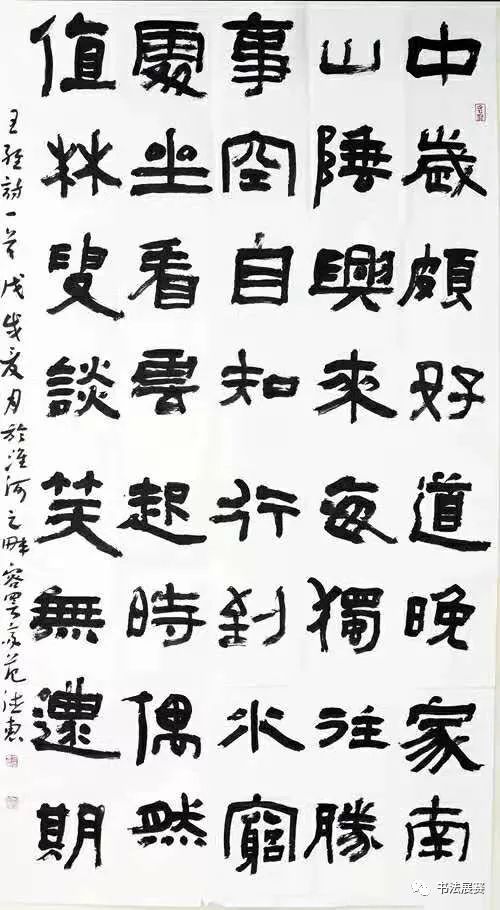 中歲頗好道晚家南
山陲興來每獨往勝
事空自知行到水窮
處坐看雲起時偶然
值林叟談笑無還期
王維詩一首戊戌夏月於淮河之畔
书法展赛